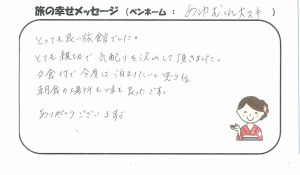 旅の幸せメッセージ（ペンネーム：あゆむくん大スキ）
とっても良い旅館でした。
とても親切で気配りを沢山して頂きました。
夕食付で今度は泊まりたいと思う位
朝食の場所も味も良かったです。
ありがとうございます